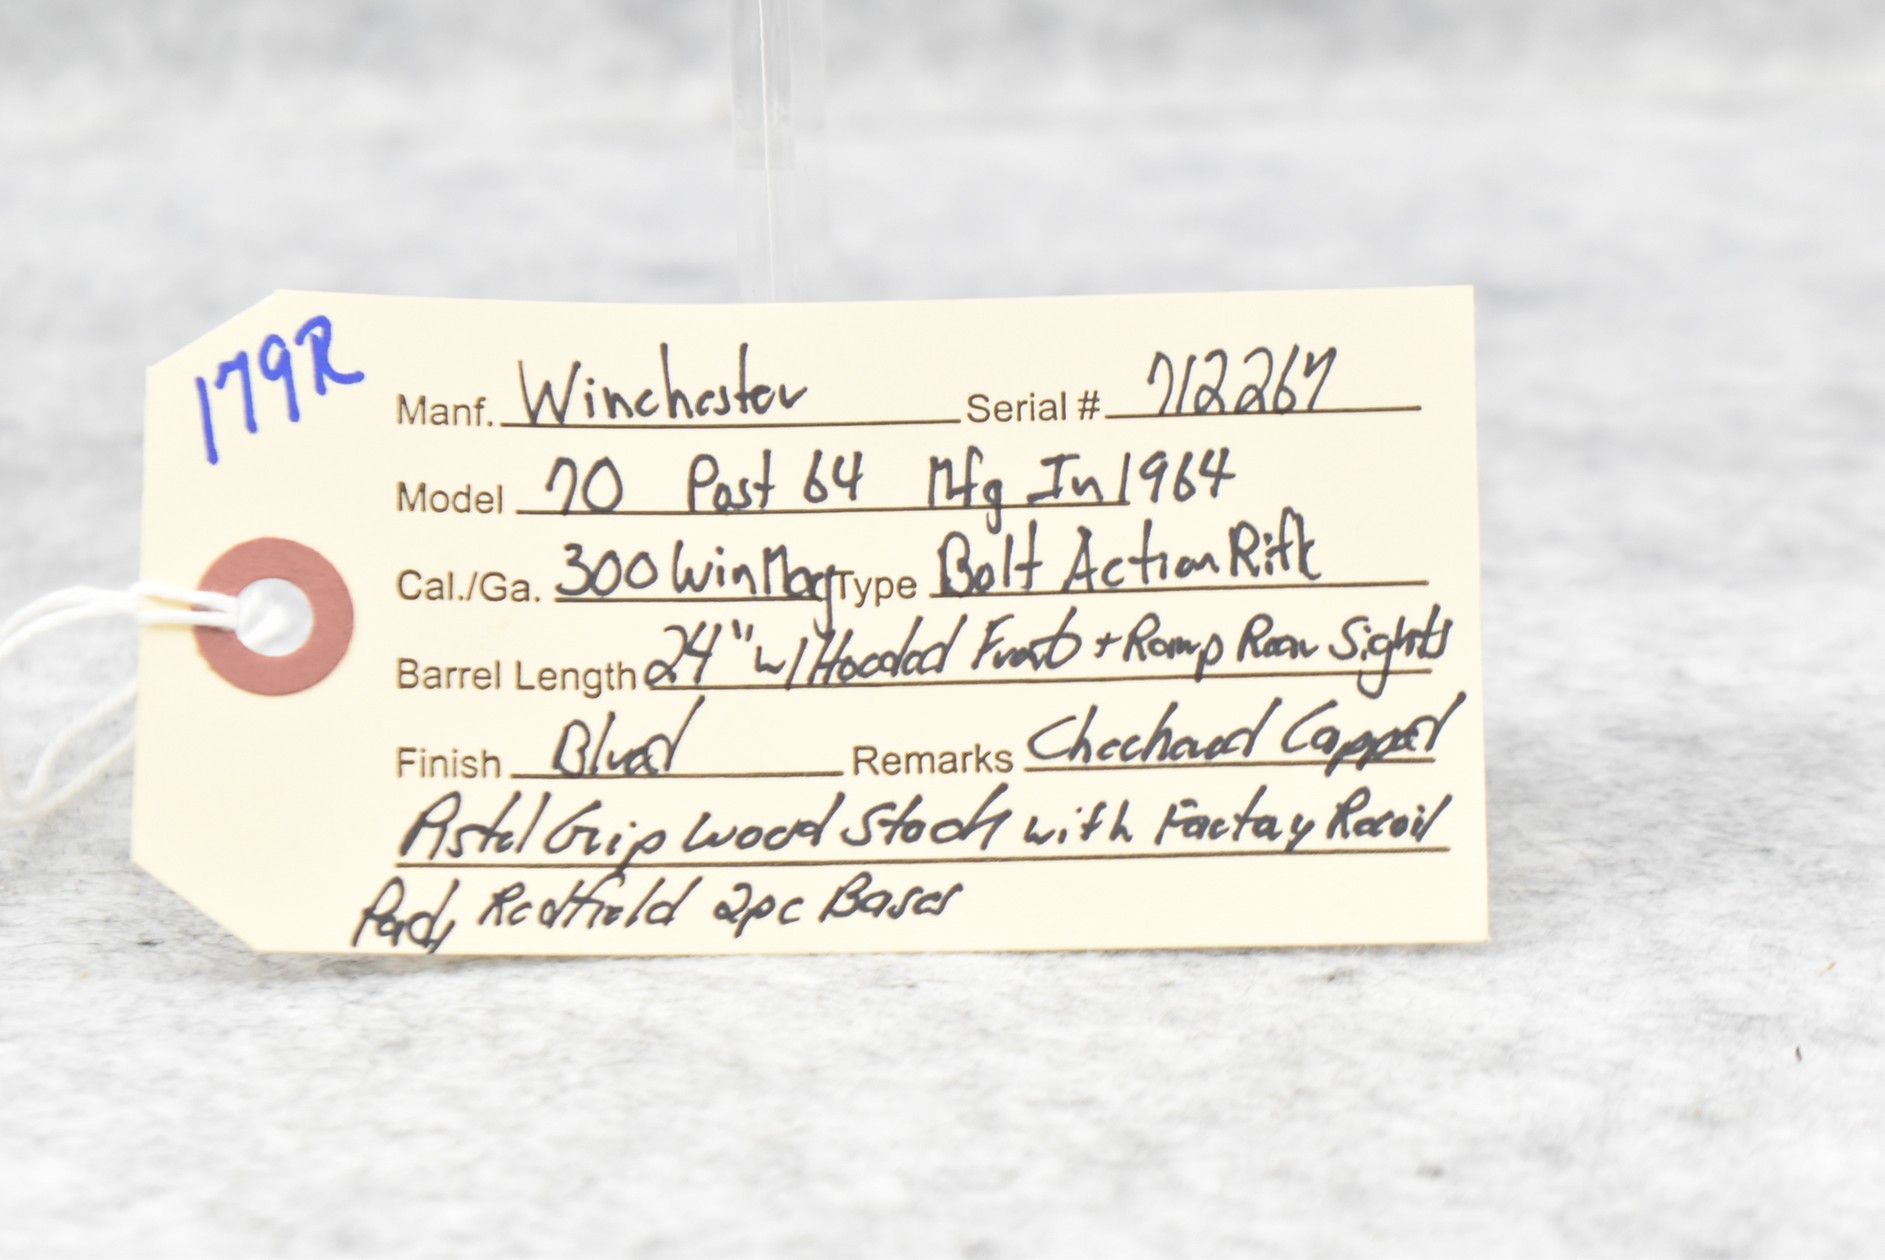 179R
Manf. Winchester Serial # 712267
Model 70 Post 64 Mfg In 1964
Cal./Ga. 300 Win Mag Type Bolt Action Rifle
Barrel Length 24" w/ Hooded Front + Ramp Rear Sights
Finish Blued Remarks Checkered Capped
Pistol Grip Wood Stock with Factory Recoil
Pad, Redfield 2pc Bases